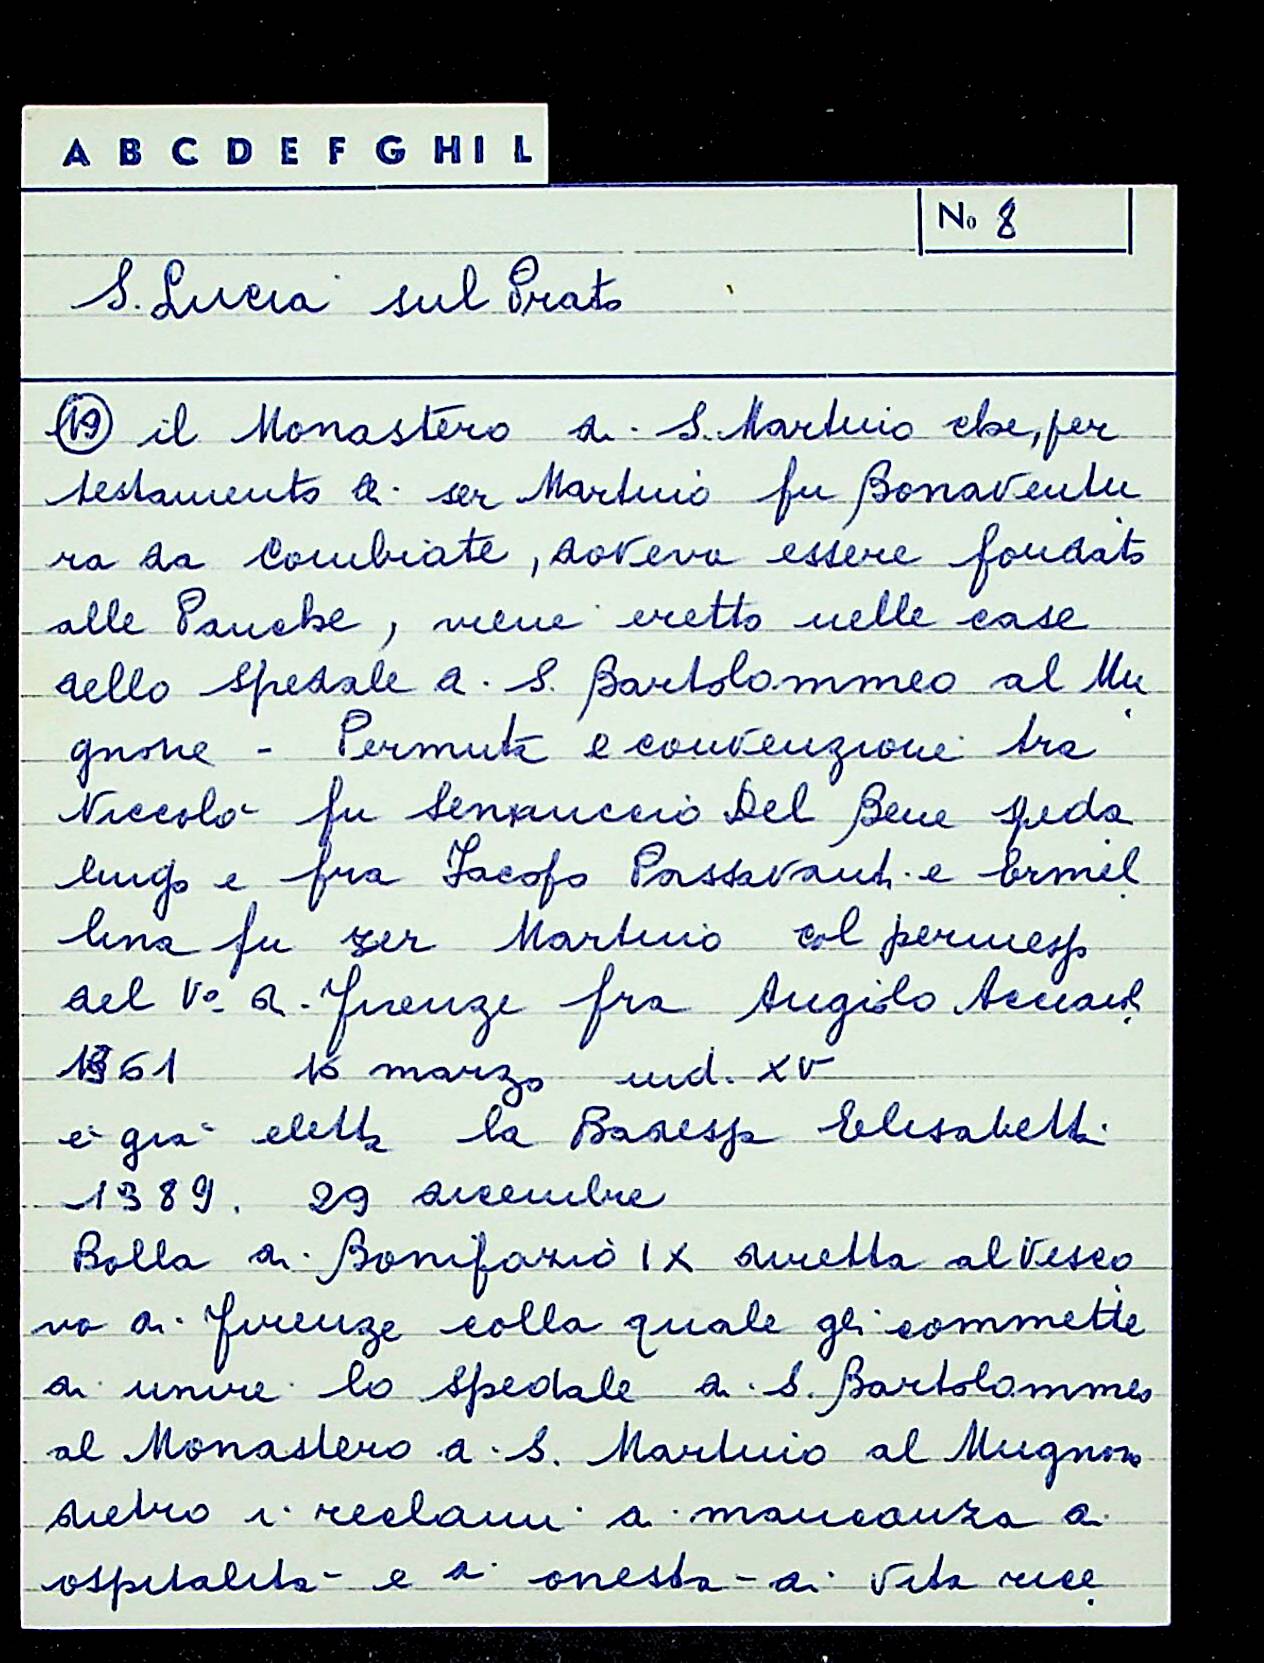 A B C D E F G H I L
No 8
S. Lucia sul Prato
19 il Monastero di S. Martino che, per
testamento di ser Martino fu Bonaventu
ra da Combiate, doveva essere fondato
alle Panche, viene eretto nelle case
dello Spedale di S. Bartolommeo al Mu
gnone - Permuta e convenzione tra
Niccolò fu Sennuccio Del Bene speda
lingo e fra Jacopo Passavanti e Ermel
lina fu ser Martino col permesso
del Vo di Firenze fra Angiolo Acciaiol
1361 16 marzo ind. XV
è già eletta la Badessa Elisabetta
1389. 29 dicembre
Bolla di Bonifazio IX diretta al Vesco
vo di Firenze colla quale gli commette
di unire lo Spedale di S. Bartolommeo
al Monastero di S. Martino al Mugnone
dietro i reclami di mancanza di
ospitalità e di onestà di vita rice